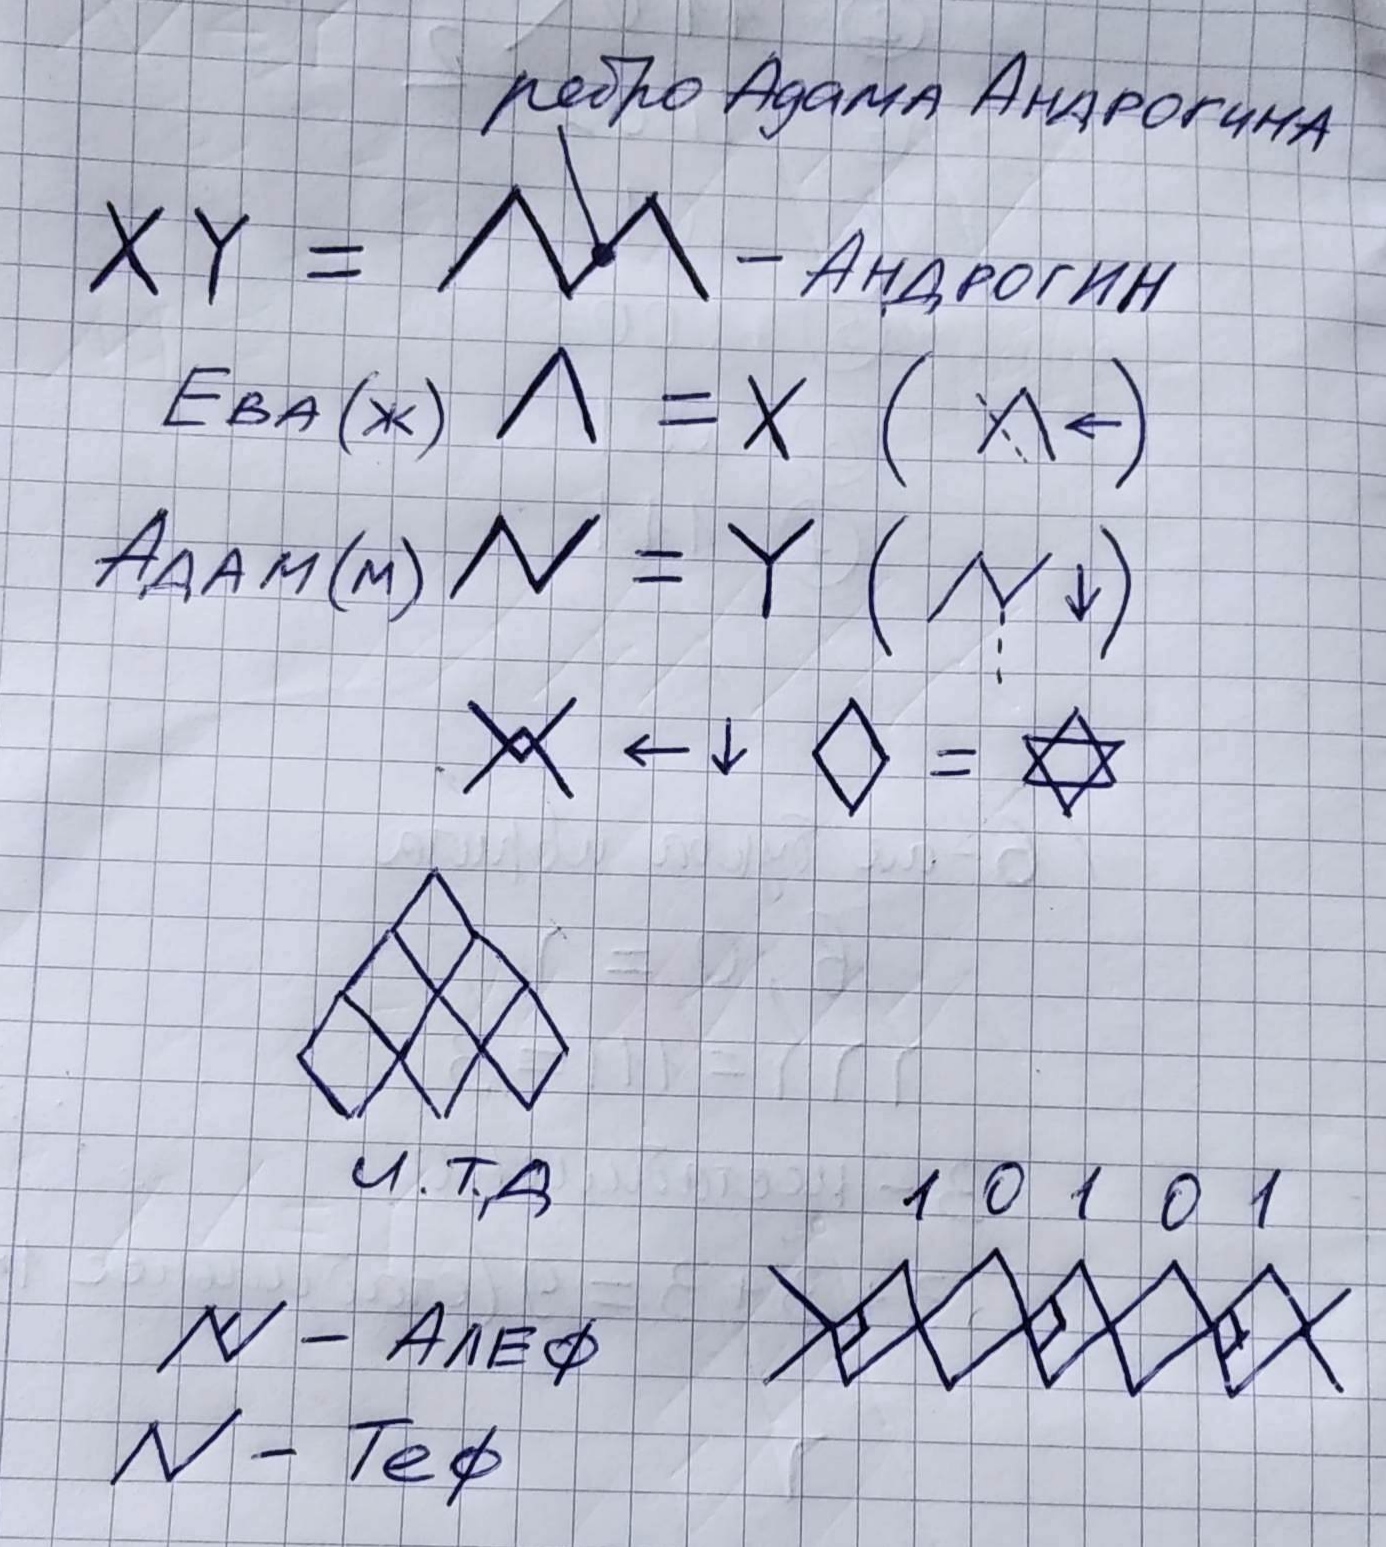 ребро Адама Андрогина
XY = – Андрогин
Ева(ж) Λ = X ( ← )
Адам(м) N = Y ( ↓ )
← ↓ ◊ = ✡
и.т.д
1 0 1 0 1
– Алеф
N – Теф